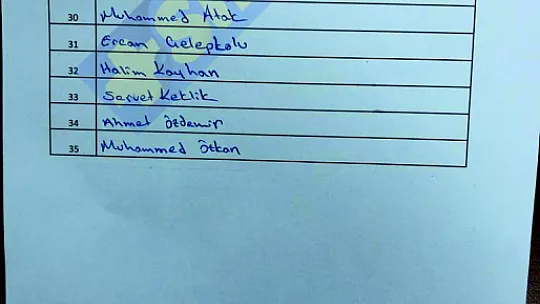 30 Muhammed Atak
31 Ercan Gelepkolu
32 Halim Kayhan
33 Servet Keklik
34 Ahmet Özdemir
35 Muhammed Özkan